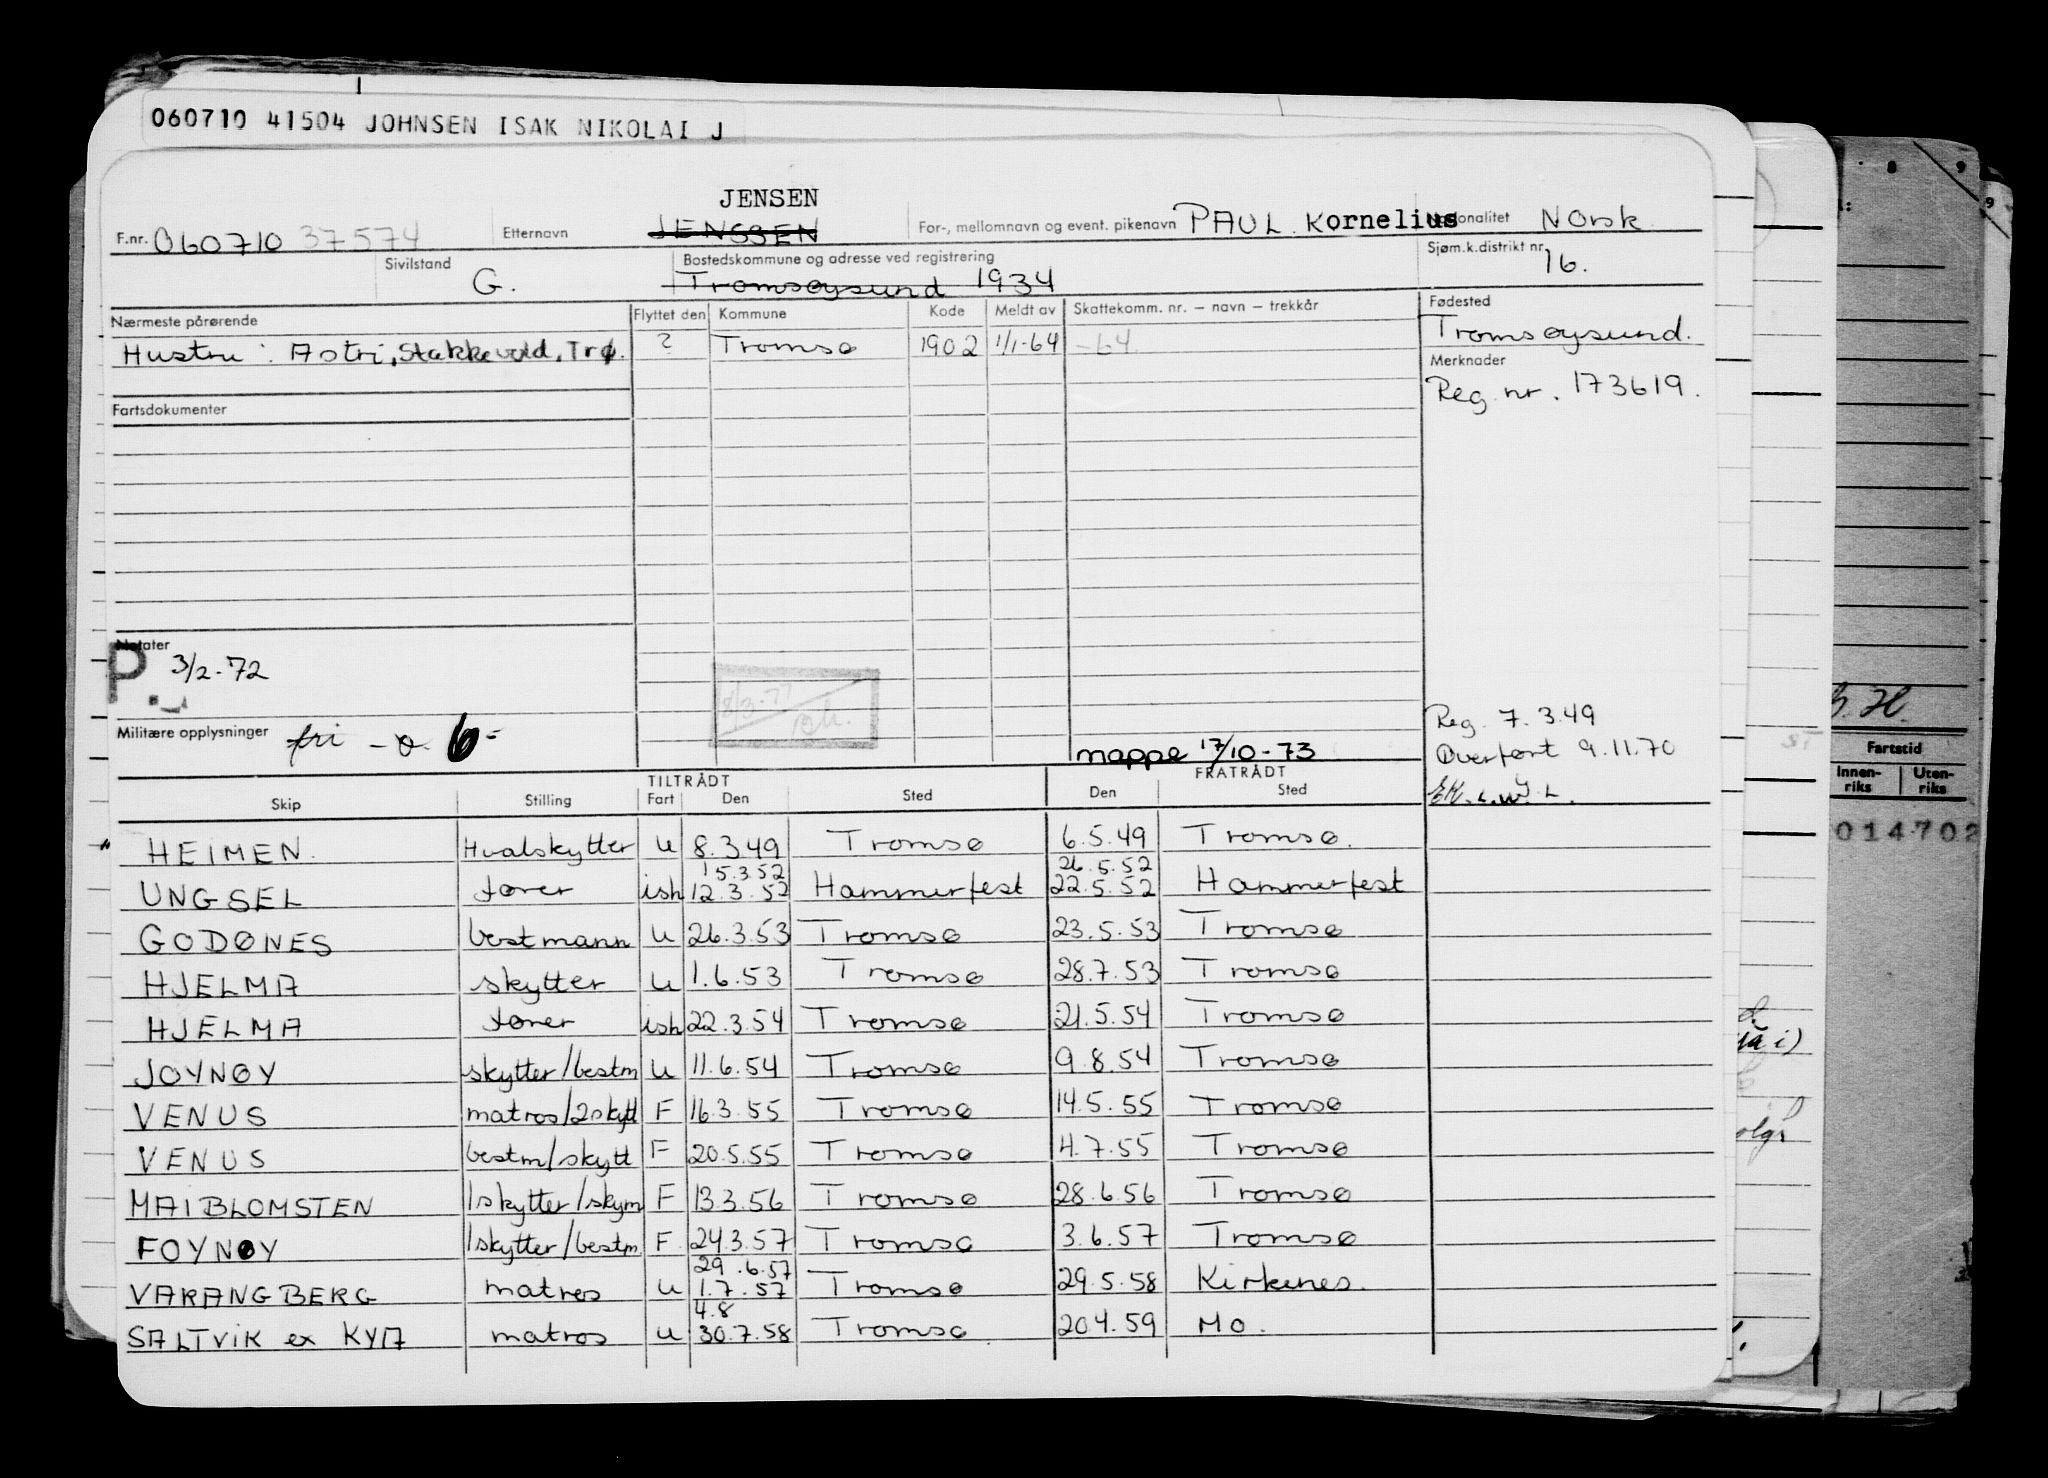 060710 41504 JOHNSEN ISAK NIKOLAI J
JENSEN
F.nr. 060710 37574 Etternavn JENSSEN For-, mellomnavn og event. pikenavn PAUL Kornelius Nasjonalitet Norsk
Sivilstand G. Bostedskommune og adresse ved registrering Tromsøysund 1934 Sjøm.k.distrikt nr. 16.
Nærmeste pårørende Flyttet den Kommune Kode Meldt av Skattekomm. nr. – navn – trekkår Fødested
Hustru: Astri, Stakkevold, Trø. ? Tromsø 1902 1/1-64 -64 Tromsøysund.
Merknader
Reg. nr. 173619.
Fartsdokumenter
Notater
P. 3/2-72
Militære opplysninger fri - o. 6-
mappe 17/10-73
Reg. 7.3.49
Overført 9.11.70
TILTRÅDT FRATRÅDT
Skip Stilling Fart Den Sted Den Sted
HEIMEN. Hvalskytter u 8.3.49 Tromsø 6.5.49 Tromsø.
15.3.52 26.5.52
UNGSEL fører ish 12.3.52 Hammerfest 22.5.52 Hammerfest
GODØNES bestmann u 26.3.53 Tromsø 23.5.53 Tromsø
HJELMA skytter u 1.6.53 Tromsø 28.7.53 Tromsø
HJELMA fører ish 22.3.54 Tromsø 21.5.54 Tromsø
JOYNØY skytter/bestm u 11.6.54 Tromsø 9.8.54 Tromsø
VENUS matros/2skytt F 16.3.55 Tromsø 14.5.55 Tromsø
VENUS bestm/skytt F 20.5.55 Tromsø 4.7.55 Tromsø
MAIBLOMSTEN 1skytter/skym F 13.3.56 Tromsø 28.6.56 Tromsø
FOYNØY 1skytter/bestm. F. 24.3.57 Tromsø 3.6.57 Tromsø
29.6.57
VARANGBERG matros u 1.7.57 Tromsø 29.5.58 Kirkenes.
4.8
SALTVIK ex KYA matros u 30.7.58 Tromsø 20.4.59 Mo.
8 9
9
Fartstid
Innen-riks Uten-riks
014702